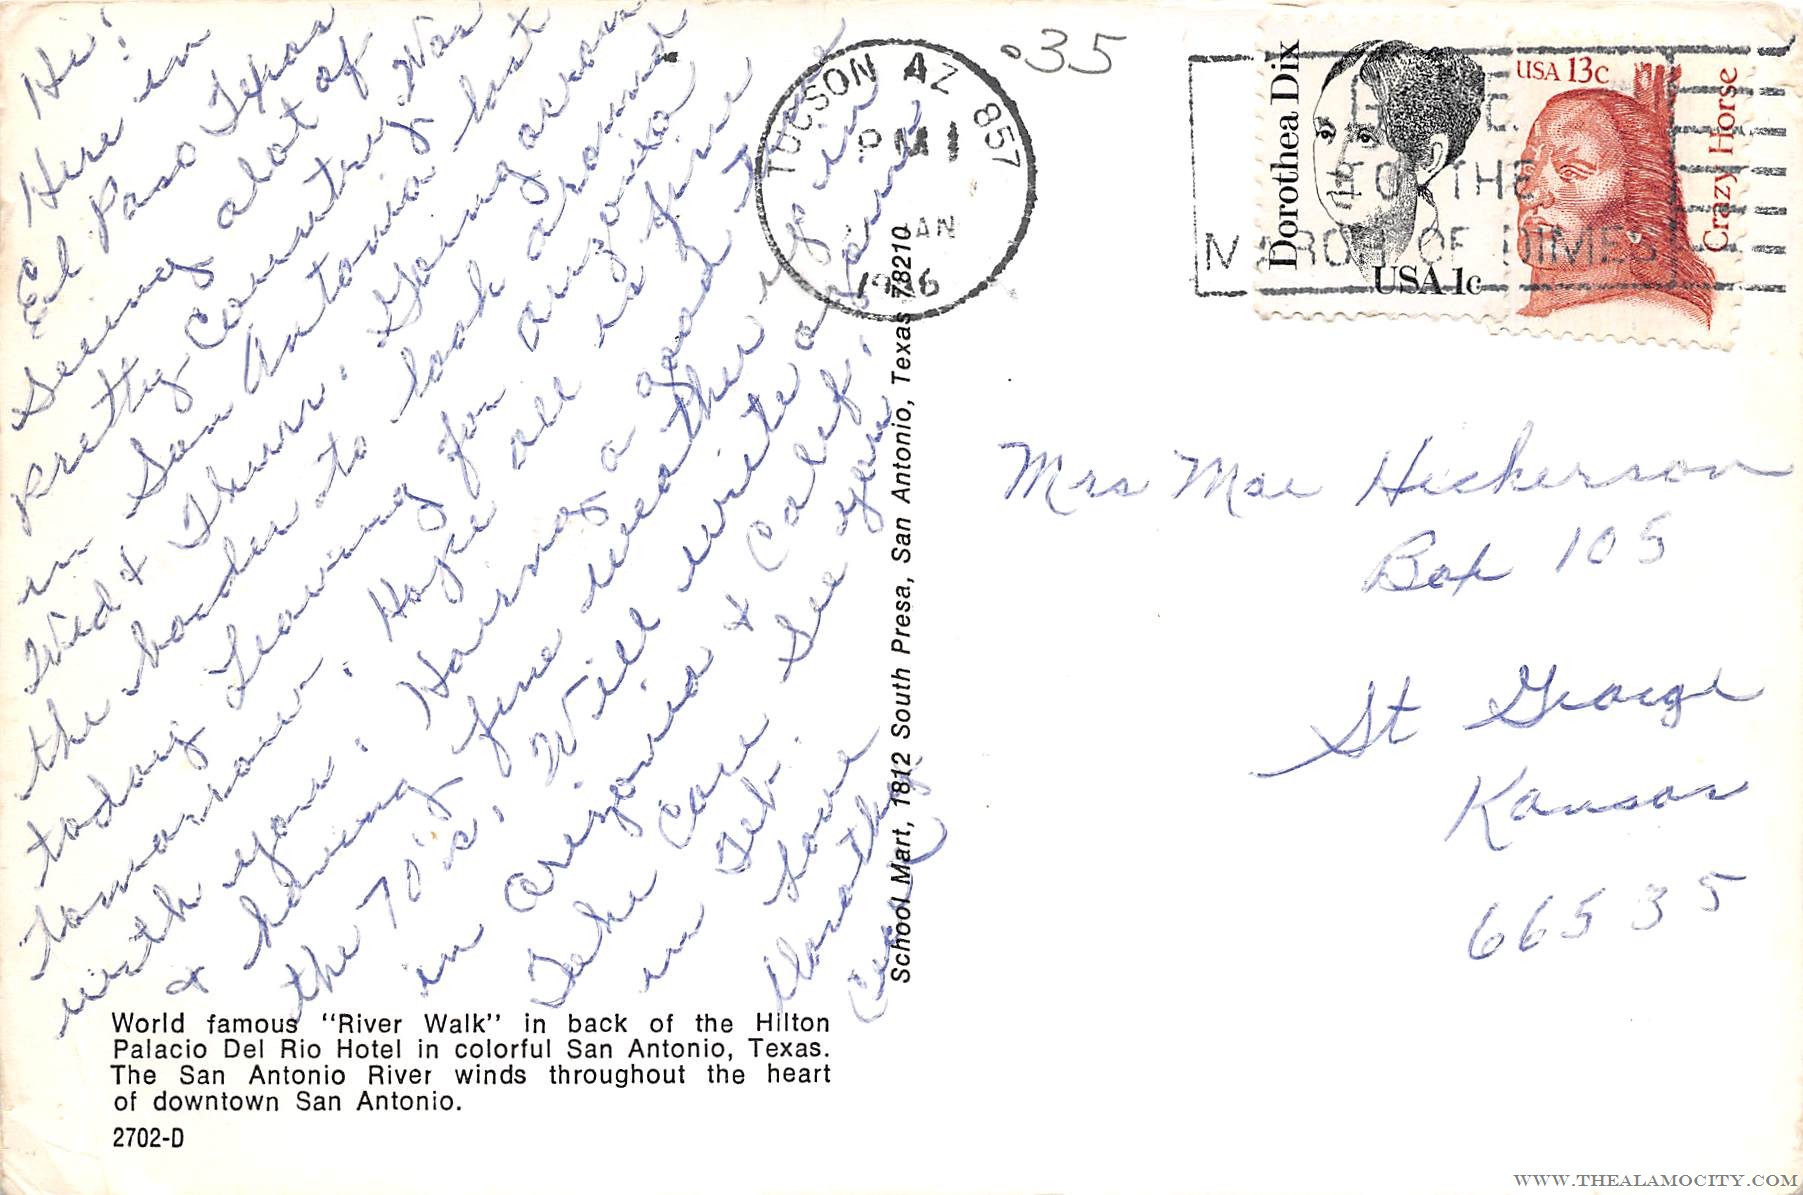 Hi!
Here in
El Paso Texas
Seeing alot of
pretty Country. Was
in San Antonio last
Wed & Thurs. Going across
the border to look around
today Leaving for Arizonia
tomorrow. Hope all is fine
with you. Having a good time
& having fine weather up in
the 70's. Will write again
in Arizonia & Calif.
Take Care See you
in Feb.
Love
Dorothy
World famous "River Walk" in back of the Hilton
Palacio Del Rio Hotel in colorful San Antonio, Texas.
The San Antonio River winds throughout the heart
of downtown San Antonio.
2702-D
School Mart, 1812 South Presa, San Antonio, Texas 78210
.35
TUCSON AZ 857
PM
JAN
1986
GIVE
TO THE
MARCH OF DIMES
Dorothea Dix
USA 1c
USA 13c
Crazy Horse
Mrs Mae Hickerson
Box 105
St George
Kansas
66535
WWW.THEALAMOCITY.COM